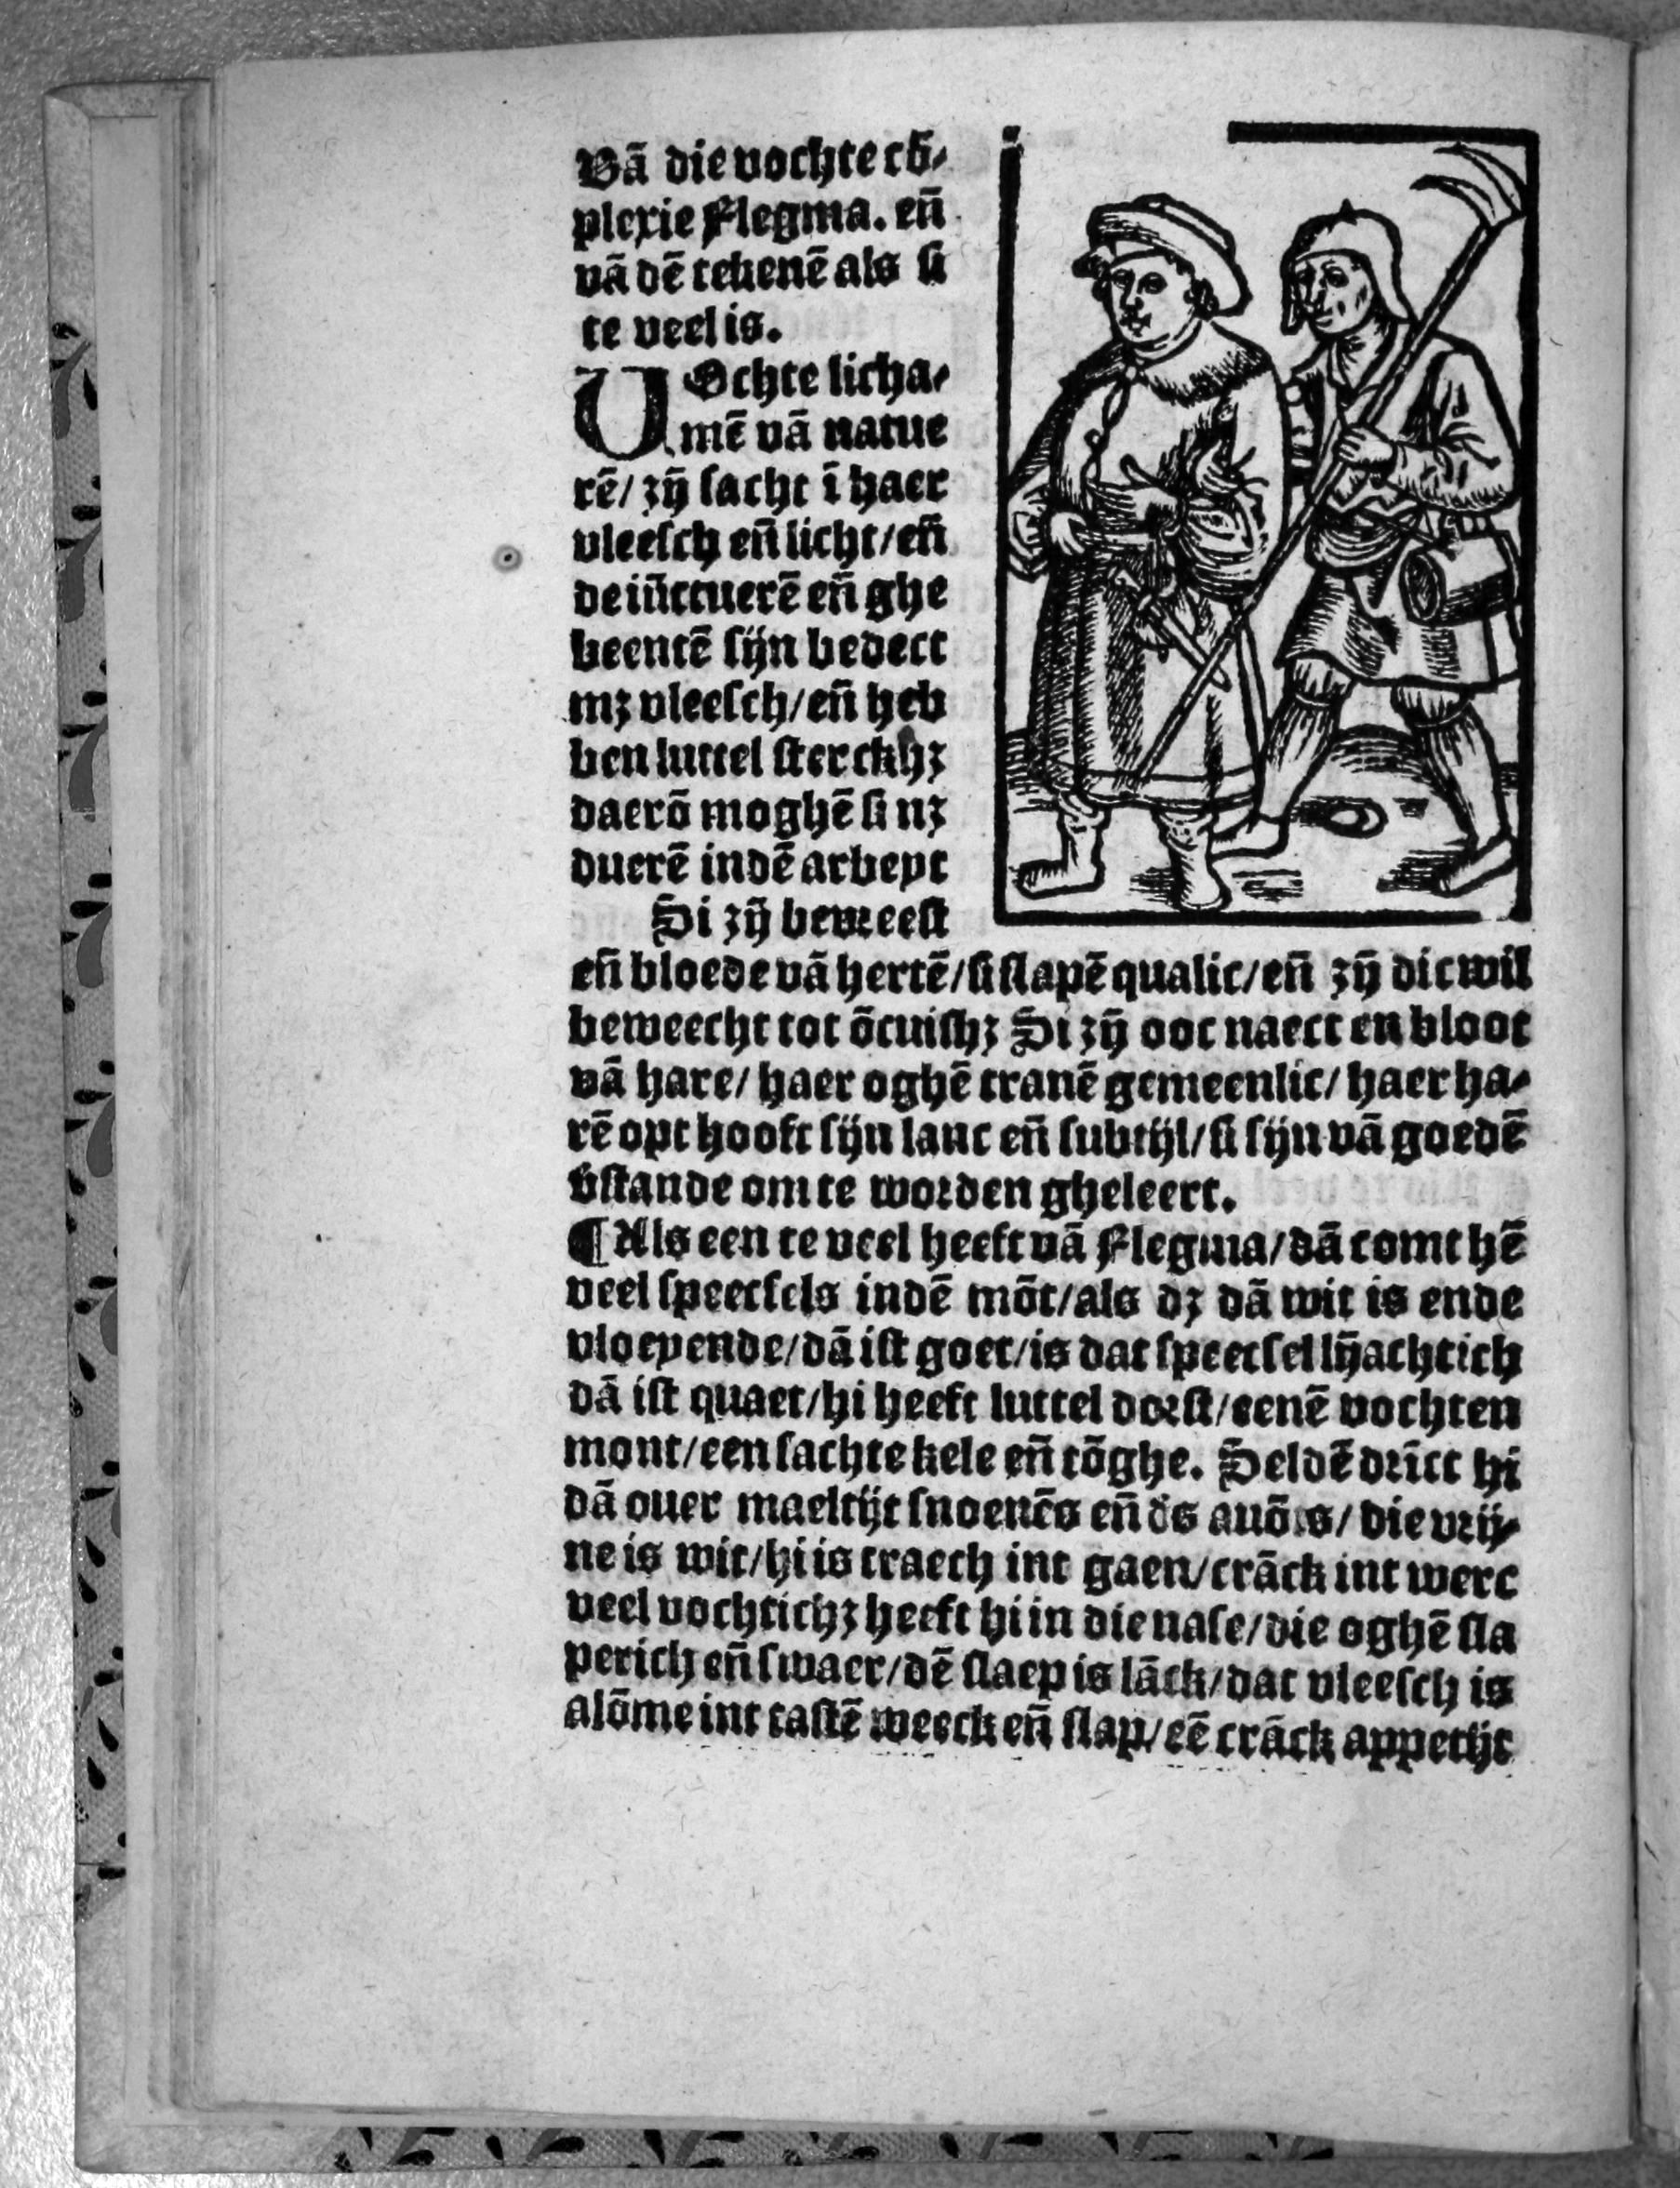 Vā die vochte cō-
plexie Flegma. en̄
vā dē tekenē als si
te veel is.
VOchte licha-
mē vā natue
rē/ zȳ sacht ī haer
vleesch en̄ licht/en̄
de iūctuerē en̄ ghe
beentē sijn bedect
mꝫ vleesch/en̄ heb
ben luttel sterckhꝫ
daerō moghē si nꝫ
duerē indē arbeyt
Si zȳ bevreest
en̄ bloede vā hertē/si slapē qualic/en̄ zȳ dicwil
beweecht tot ōcuishꝫ Si zȳ ooc naect en bloot
vā hare/ haer oghē tranē gemeenlic/ haer ha-
rē opt hooft sijn lanc en̄ subtijl/si sijn vā goedē
v̄stande om te worden gheleert.
¶ Als een te veel heeft vā Flegma/dā comt hē
veel speecsels indē mōt/als dꝫ dā wit is ende
vloeyende/dā ist goet/is dat speecsel lȳachtich
dā ist quaet/hi heeft luttel dorst/eenē vochten
mont/een sachte kele en̄ tōghe. Seldē drīct hi
dā ouer maeltijt snoenēs en̄ ds auōts/ die vrij-
ne is wit/hi is traech int gaen/crāck int werc
veel vochtichꝫ heeft hi in die nase/die oghē sla
perich en̄ swaer/dē slaep is lāck/dat vleesch is
alōme int tastē weeck en̄ slap/eē crāck appetijt